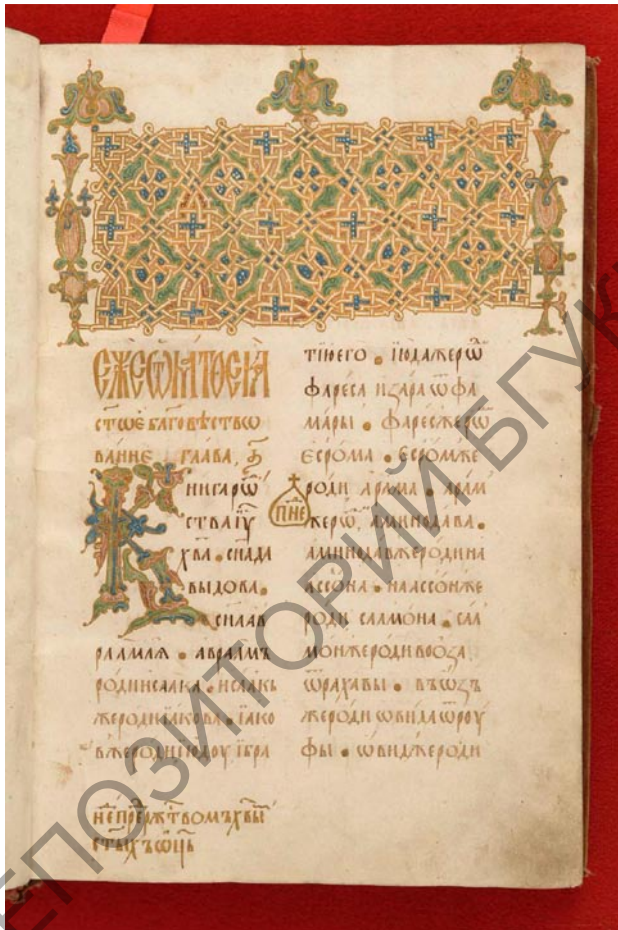 ЕЖЕСѾМАТѲЕИА
ст҃ѡе бл҃говѣство
вание глава, а҃
Книгарѡⷤ
ства іу҃
хв҃а • сн҃ада
выдова •
сн҃аав
рламлѧ • авраамъ
родиисаака • исаакь
жеродиіакова • іако
вжеродиіюдоу ібра
тїюего • іюдажерѡⷣ
фареса изара ѿ фа
мары • фаресжерѡⷣ
есрома • есромже
роди арама • арам
жерѡⷣ, аминодава •
аминодавжеродина
ассона • наассонже
роди салмона • сал
монжеродивооза
ѿрахавы • въѡзъ
жероди ѡвида ѿроу
фы • ѡвиджероди
П҃НЕ
не҃прержⷭ҇твомъхв҃ы
ст҃ыхъѿць
ЕПОЗИТОРИЙ БГУК